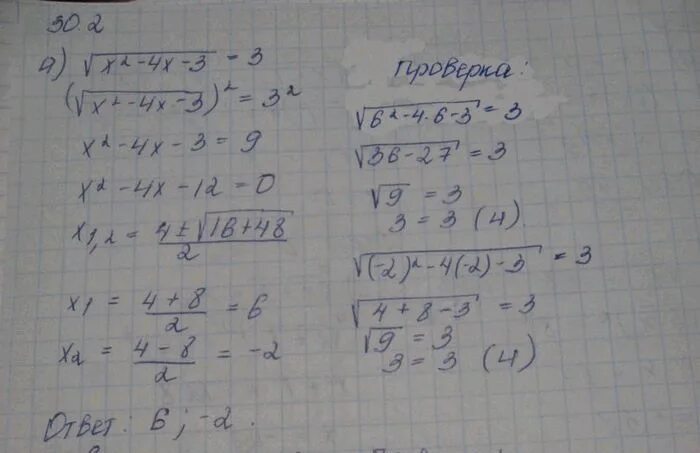 30.2
а) √(x²-4x-3) = 3
(√(x²-4x-3))² = 3²
x²-4x-3=9
x²-4x-12=0
x₁,₂ = (4±√(16+48))/2
x₁ = (4+8)/2 = 6
x₂ = (4-8)/2 = -2
Ответ: 6; -2.
Проверка:
√(6²-4·6-3) = 3
√(36-27) = 3
√9 = 3
3 = 3 (И)
√((-2)²-4(-2)-3) = 3
√(4+8-3) = 3
√9 = 3
3 = 3 (И)